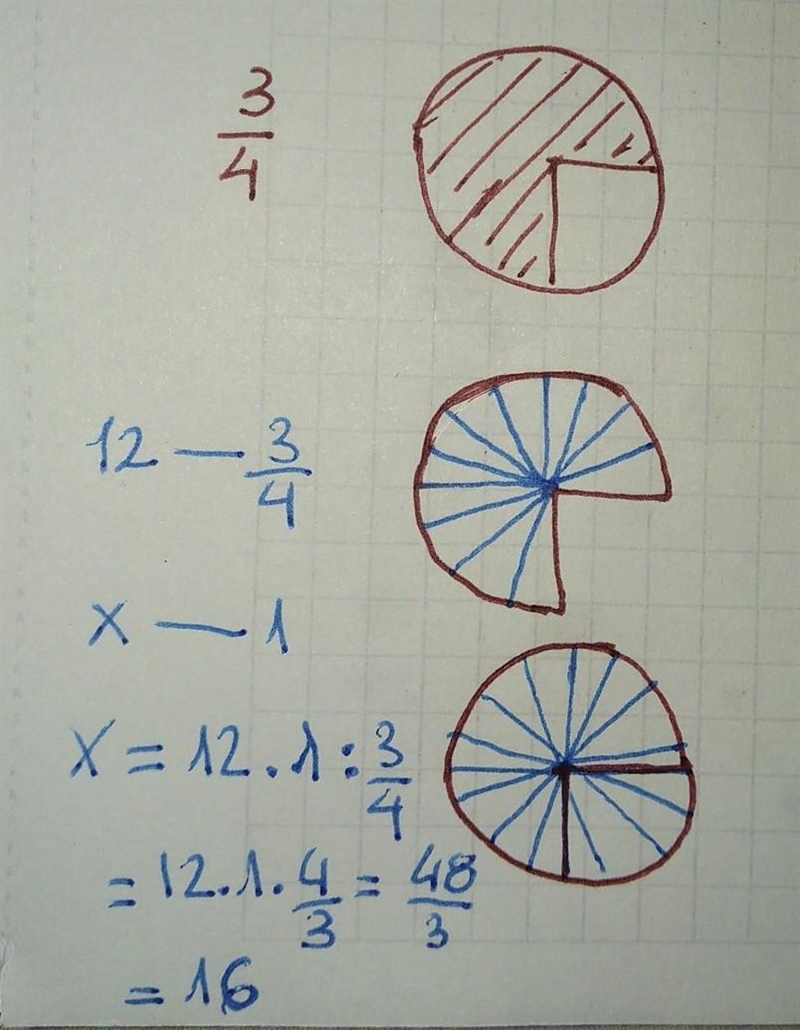 3/4
12 — 3/4
x — 1
X = 12 . 1 : 3/4
= 12 . 1 . 4/3 = 48/3
= 16